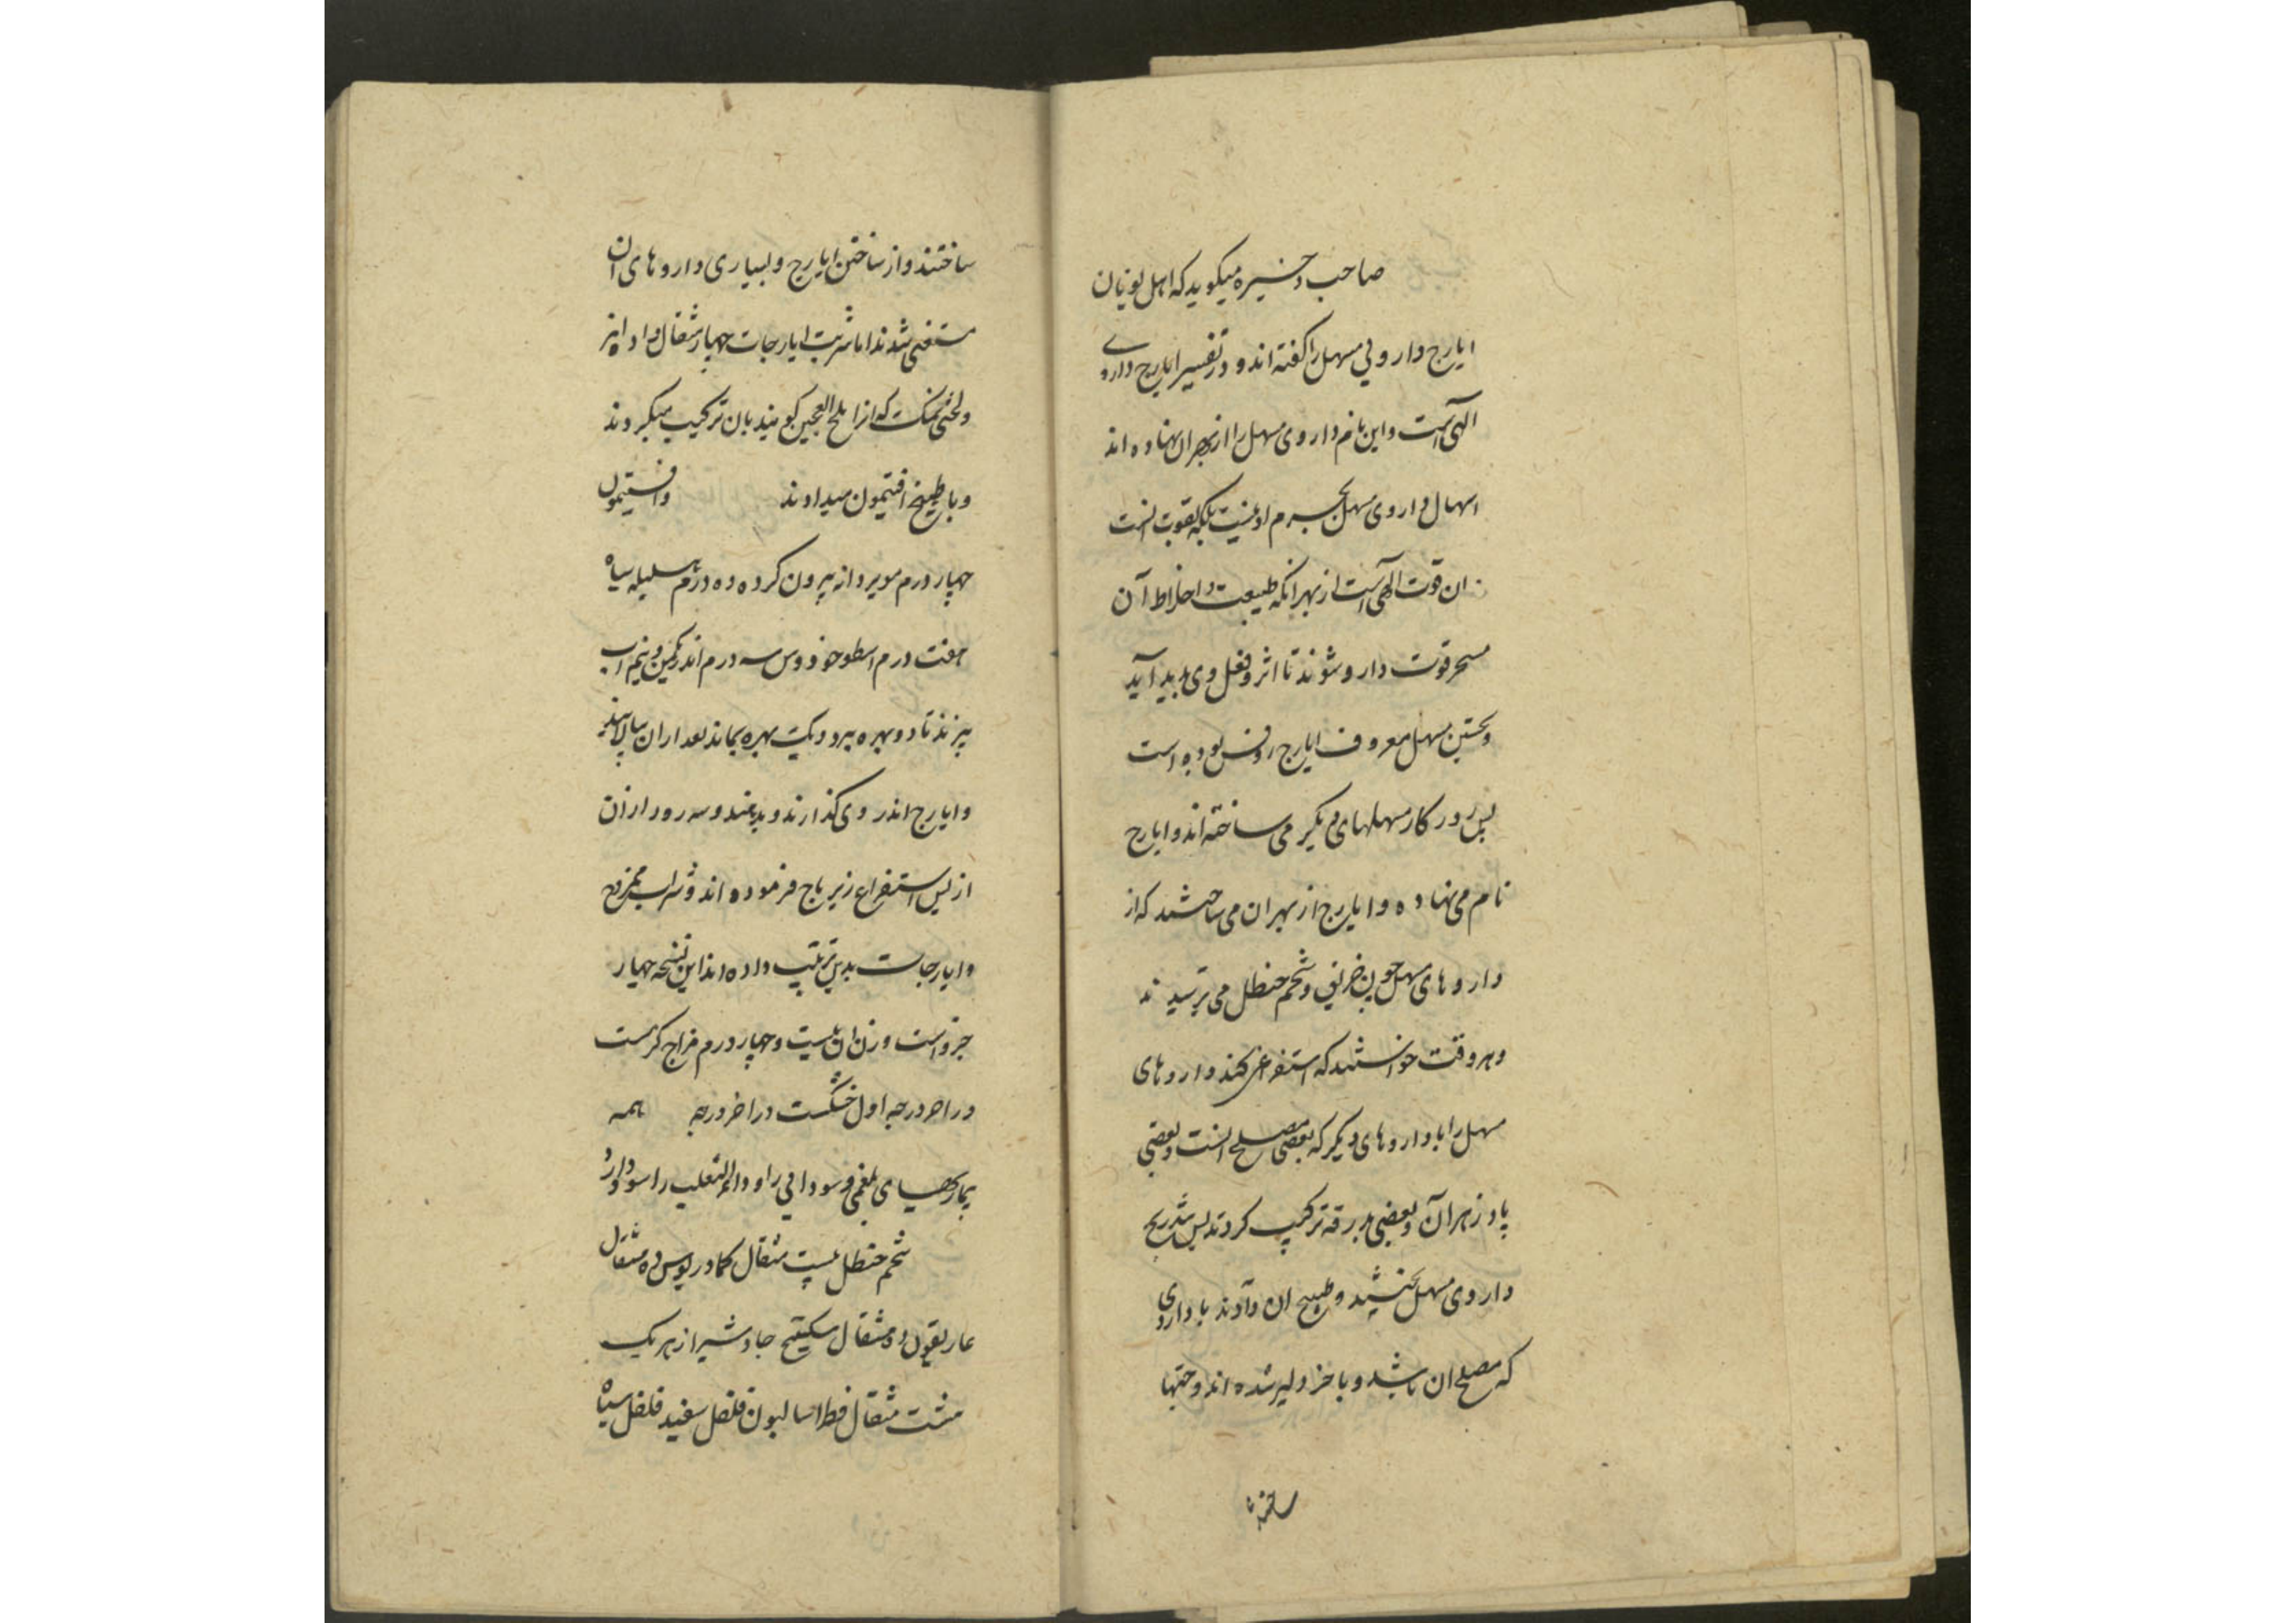 صاحب ذخیره میکوید که اهل یونان
ایارج داروئی مسهل را کفته اند و در تفسیر ایارج داروے
الهی است و این نام داروی مسهل را از بهر ان نهاده اند
اسهال داروی مسهل بجرم او نیست بلکه بقوت است
ان قوت الهی است از بهر انکه طبیعت و اخلاط آن
مسخر قوت دارو شوند تا اثر و فعل وی پدید آید
و نخستین مسهل معروف ایارج روفس بوده است
پس روزکار مسهلهای دیکر می ساخته اند و ایارج
نام می نهاده و ایارج از بهر ان می ساختند که از
داروهای مسهل چون خربق و شحم حنظل می ترسیدند
و هر وقت خواستند که استفراغی کنند داروهای
مسهل را با داروهای دیکر که بعضی مصلح است و بعضی
پادزهر آن و بعضی بدرقه ترکیب کردند پس بتدریج
داروی مسهل و طبیخ ان دادند با داروی
که مصلح ان باشد و باخر دلیر شده اند و حبها
ساختند
ساختند و از ساختن ایارج و بسیاری داروهای ان
مستغنی شدند اما شربت ایارجات چهار مثقال داده اند
و لختی نمک که انرا ملح العجین کویند بان ترکیب میکردند
و با طبیخ افتیمون میدادند و افتیمون
چهار درم مویز دانه بیرون کرده ده درم هلیله سیاه
هفت درم اسطوخودوس سه درم اندر یکمن و نیم اب
بپزند تا دو بهره برود و یک بهره بماند بعد از ان بپالایند
و ایارج اندر وی کذارند و بدهند و سه روز از ان
از پس استفراغ زیرباج فرموده اند و شراب ممزوج
و ایارجات بدین ترتیب داده اند این نسخه چهار
جزو است وزن ان بیست و چهار درم مزاج کرمست
در اخر درجه اول خشکست در اخر درجه همه
بیماریهای بلغمی و سودائی را و داء الثعلب را سود دارد
شحم حنظل بیست مثقال کمادریوس ده مثقال
غاریقون ده مثقال سکبینج جاوشیر از هر یک
هشت مثقال فطراسالیون فلفل سفید فلفل سیاه